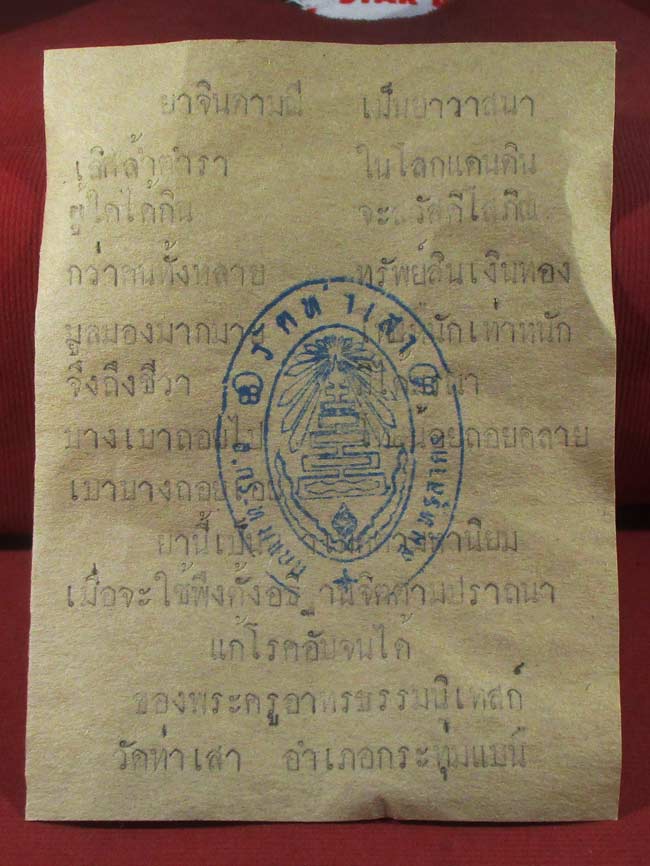 ยาจินดามณี เป็นยาวาสนา
เลิศล้ำตำรา ในโลกแดนดิน
ผู้ใดได้กิน จะสวัสดีโสภิณ
กว่าคนทั้งหลาย ทรัพย์สินเงินทอง
มูลมองมากมาย หนักเท่าหนัก
จึงถึงชีวา
บางเบาถอยไป ถอยคลาย
เบาบางถอย
ยานี้เป็น นิยม
เมื่อจะใช้พึงตั้งอธิฐานจิตตามปราถนา
แก้โรคอับจนได้
ของพระครูอาทรธรรมนิเทสก์
วัดท่าเสา อำเภอกระทุ่มแบน
วัดท่าเสา
กระทุ่มแบน
สมุทรสาคร